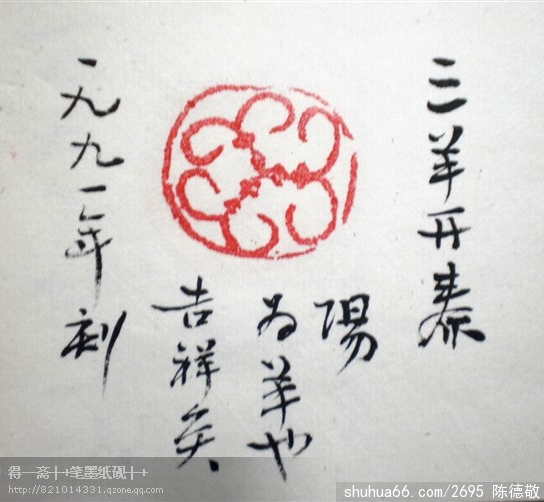 三羊开泰
陽
为羊也
吉祥矣
一九九一年刻
得一斋┼+笔墨纸砚┼+
http://821014331.qzone.qq.com
shuhua66.com/2695 陈德敬